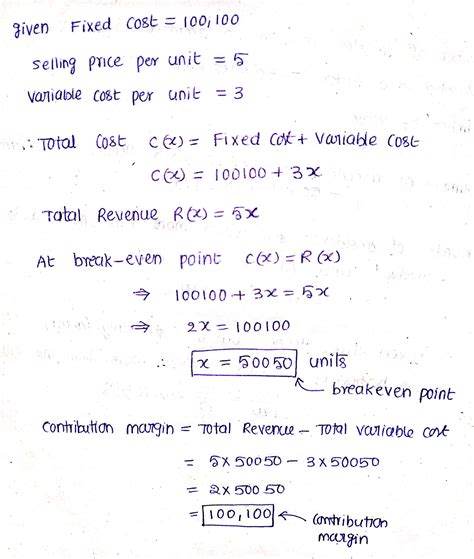 given Fixed Cost = 100,100
selling price per unit = 5
variable cost per unit = 3
∴ Total Cost C(x) = Fixed Cost + Variable Cost
C(x) = 100100 + 3x
Total Revenue R(x) = 5x
At break-even point C(x) = R(x)
⇒ 100100 + 3x = 5x
⇒ 2x = 100100
∴ x = 50050 units
breakeven point
Contribution margin = Total Revenue - Total variable cost
= 5 x 50050 - 3 x 50050
= 2 x 50050
= 100,100
Contribution
margin